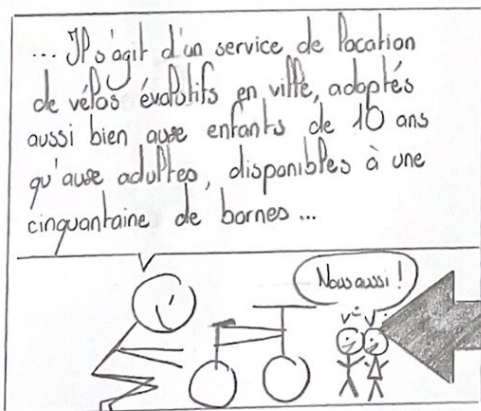 ... Il s'agit d'un service de location
de vélos évolutifs en ville, adaptés
aussi bien aux enfants de 10 ans
qu'aux adultes, disponibles à une
cinquantaine de bornes ...
Nous aussi !